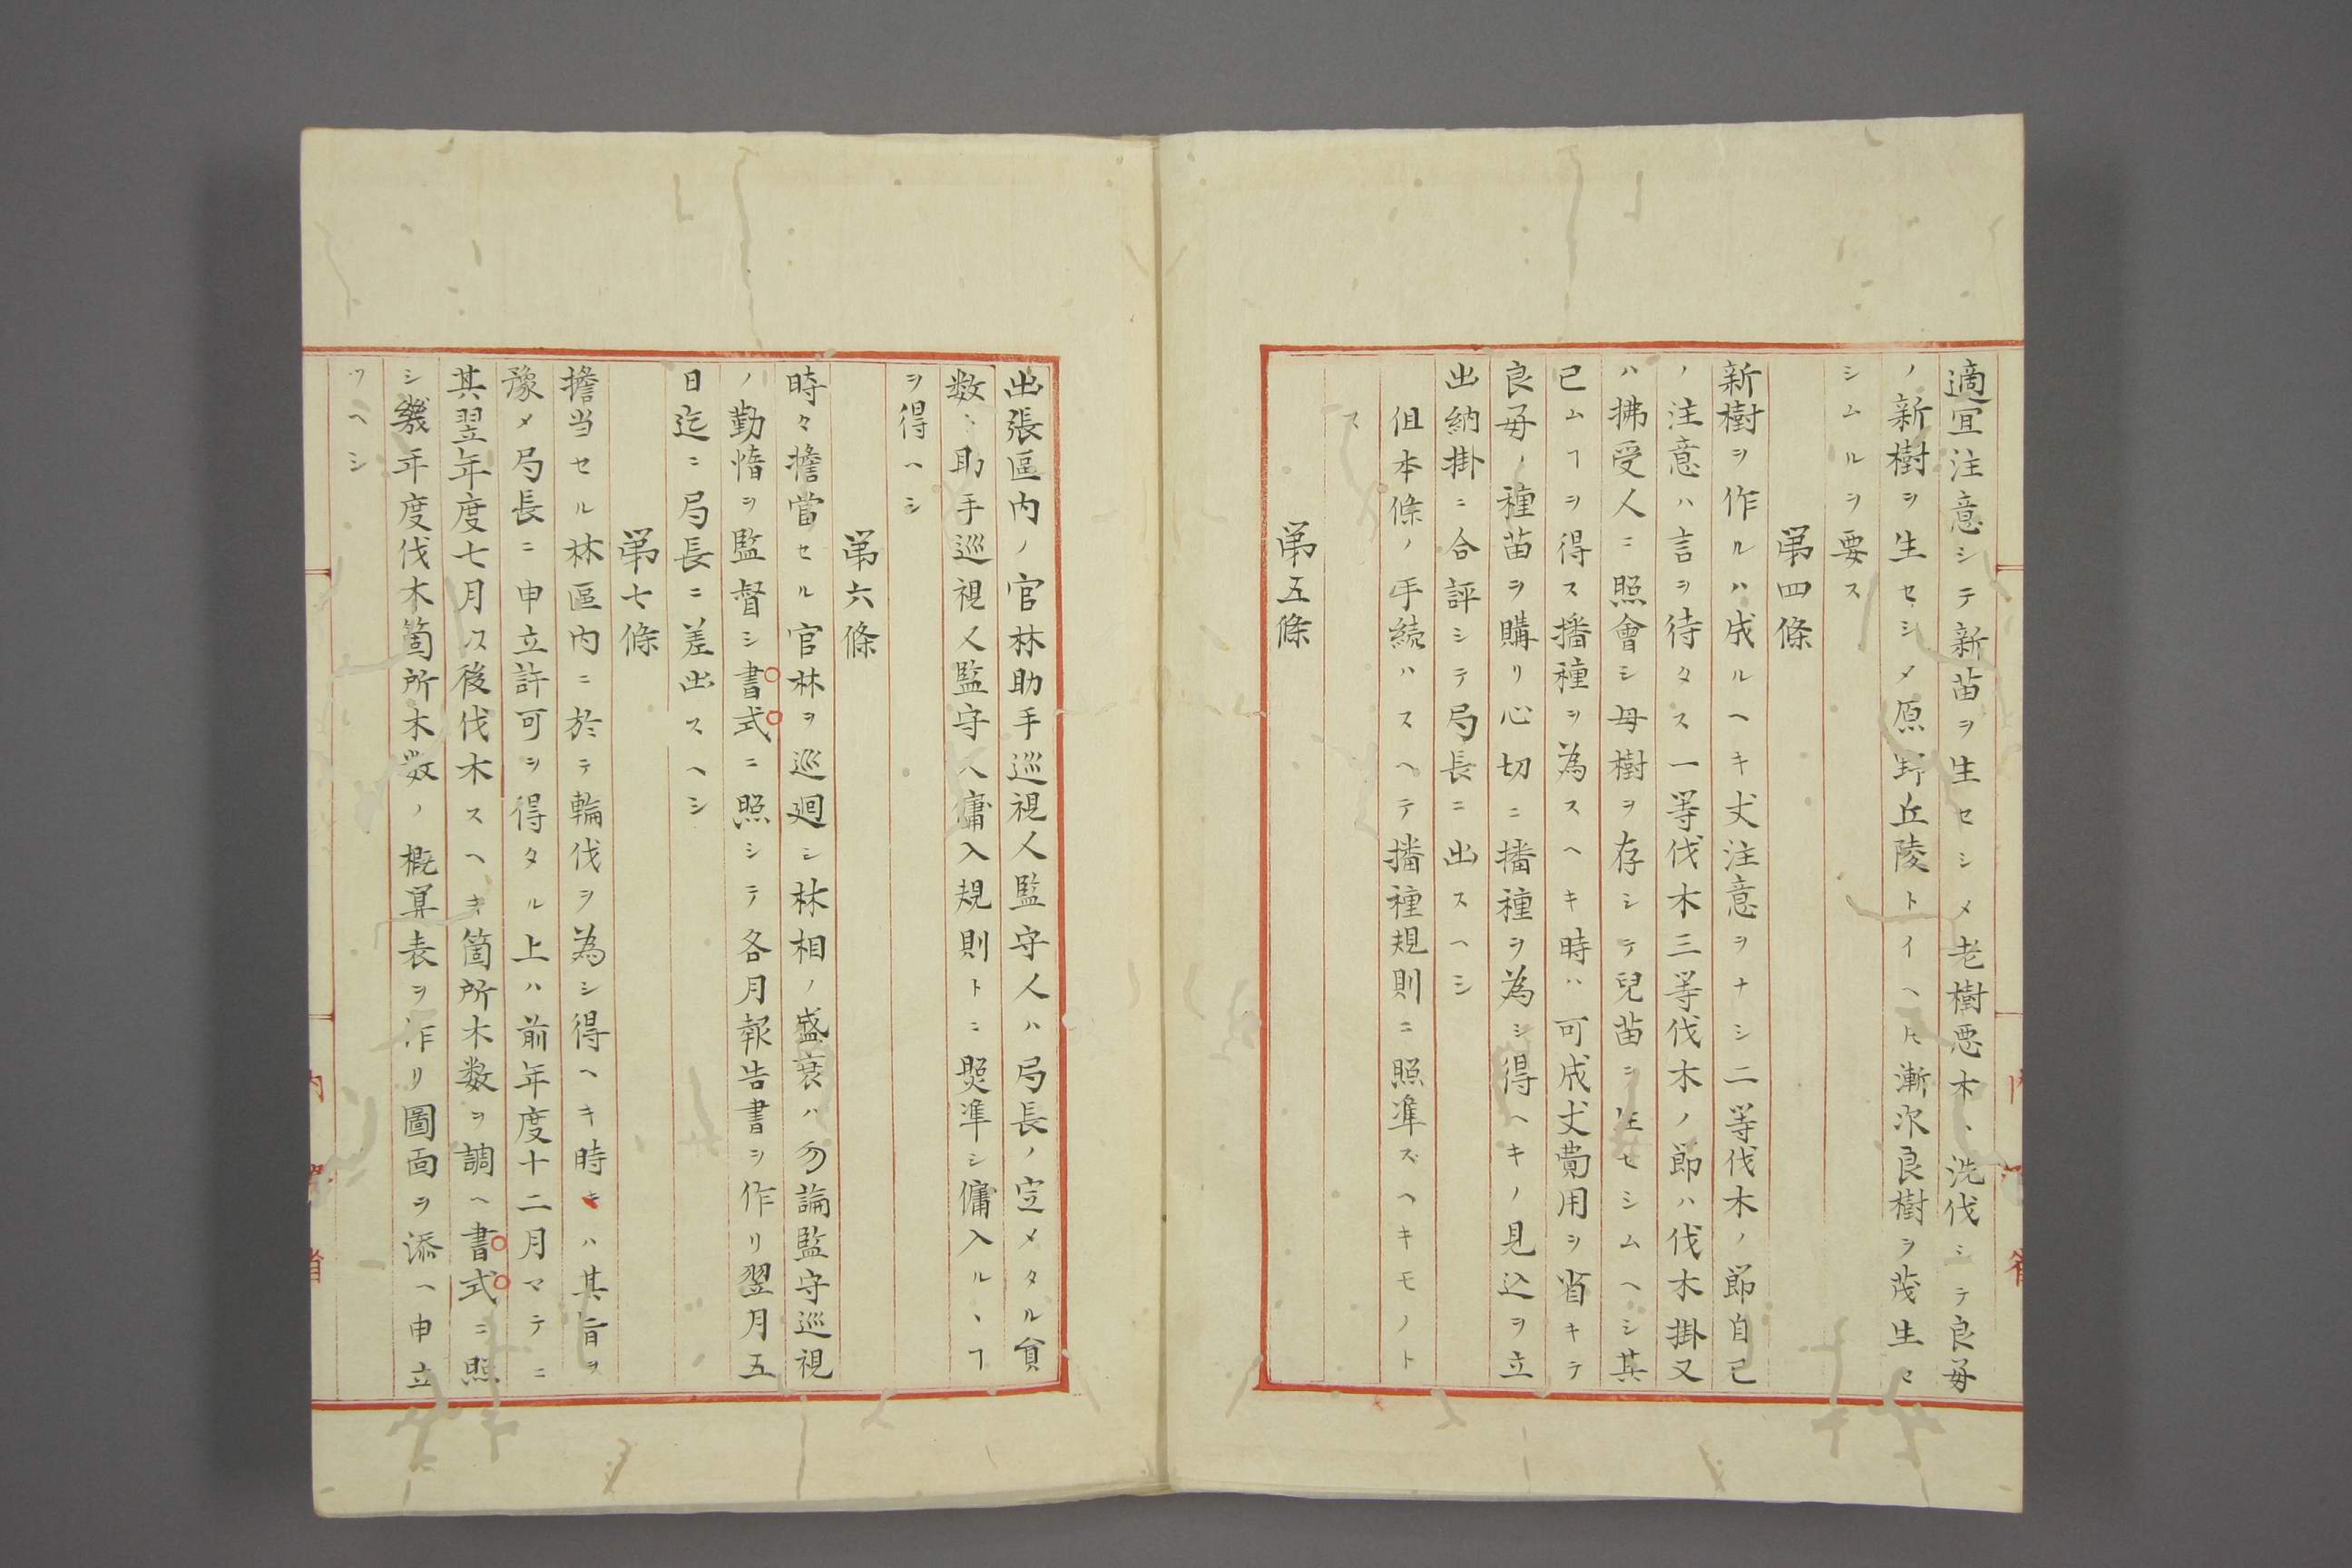 適宜注意シテ新苗ヲ生セシメ老樹悪木ヽ洗伐シテ良毎
ノ新樹ヲ生セシメ原野丘陵トイヘ𪜈漸次良樹ヲ茂生セ
シムルヲ要ス
第四條
新樹ヲ作ルハ成ルヘキ丈注意ヲナシ二等伐木ノ節自己
ノ注意ハ言ヲ待タス一等伐木三等伐木ノ節ハ伐木掛又
ハ拂受人ニ照會シ母樹ヲ存シテ兒苗ヲ生セシムヘシ其
已ムヿヲ得ス播種ヲ為スヘキ時ハ可成丈費用ヲ省キテ
良毎ノ種苗ヲ購リ心切ニ播種ヲ為シ得ヘキノ見込ヲ立
出納掛ニ合評シテ局長ニ出スヘシ
但本條ノ手続ハスヘテ播種規則ニ照準ズヘキモノト
ス
第五條
出張區内ノ官林助手巡視人監守人ハ局長ノ定メタル貟
数ヽ助手巡視人監守人傭入規則トニ照準シ傭入ルヽヿ
ヲ得ヘシ
第六條
時々擔當セル官林ヲ巡廻シ林相ノ盛衰ハ勿論監守巡視
ノ勤惰ヲ監督シ書式ニ照シテ各月報告書ヲ作リ翌月五
日迄ニ局長ニ差出スヘシ
第七條
擔当セル林區内ニ於テ輪伐ヲ為シ得ヘキ時キハ其旨ヲ
豫メ局長ニ申立許可ヲ得タル上ハ前年度十二月マテニ
其翌年度七月ス後伐木スヘキ箇所木数ヲ調ヘ書式ニ照
シ幾年度伐木箇所木数ノ概算表ヲ作リ圖面ヲ添ヘ申立
ツヘシ
内
省